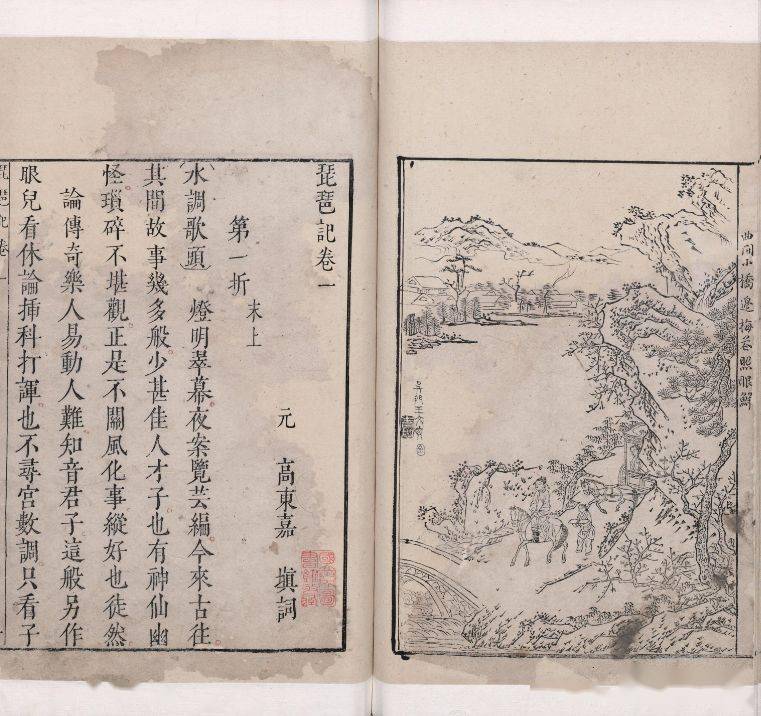 曲澗小橋邊梅花照眼鮮
吳門王文衡
琵琶記卷一
元 高東嘉 塡詞
第一折 末上
(水調歌頭) 燈明翠幕夜案覽芸編今來古往
其間故事幾多般少甚佳人才子也有神仙幽
怪瑣碎不堪觀正是不關風化事縱好也徒然
論傳奇樂人易動人難知音君子這般另作
眼兒看休論揷科打諢也不尋宮數調只看子
琵琶記卷一